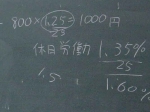 800×1.25=1000円
25
休日労働 1.35%
25
1.5
1.60%